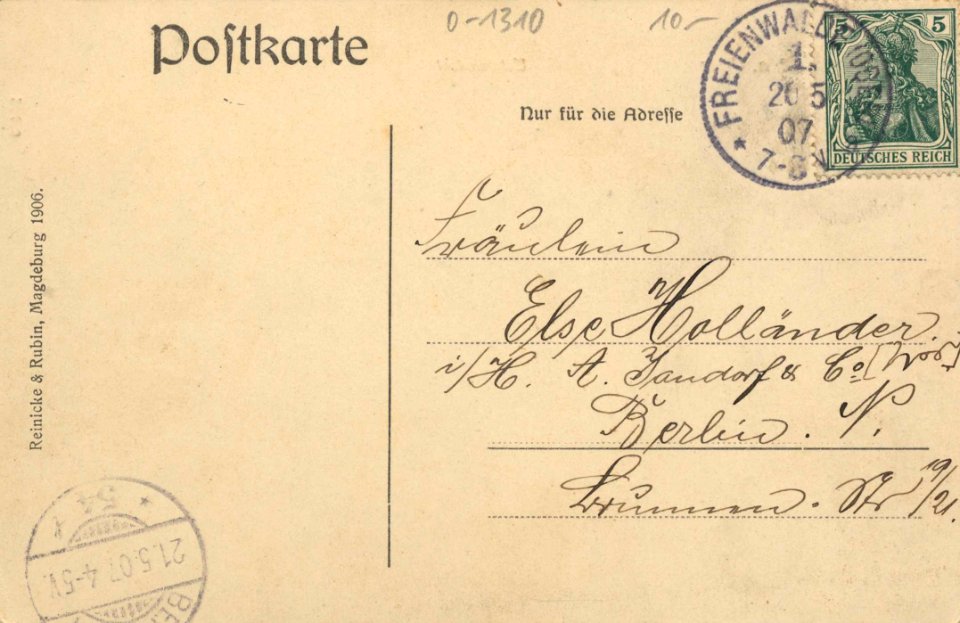 0-1310
10.-
Postkarte
FREIENWALDE (ODER)
1.
20 5
07
7-8 V
5 5
DEUTSCHES REICH
Nur für die Adresse
Fräulein
Else Holländer.
i/H. A. Jandorf & Co
Berlin. N.
Brunnen. Str 19/21.
Reinicke & Rubin, Magdeburg 1906.
54
21.5.07. 4-5V.